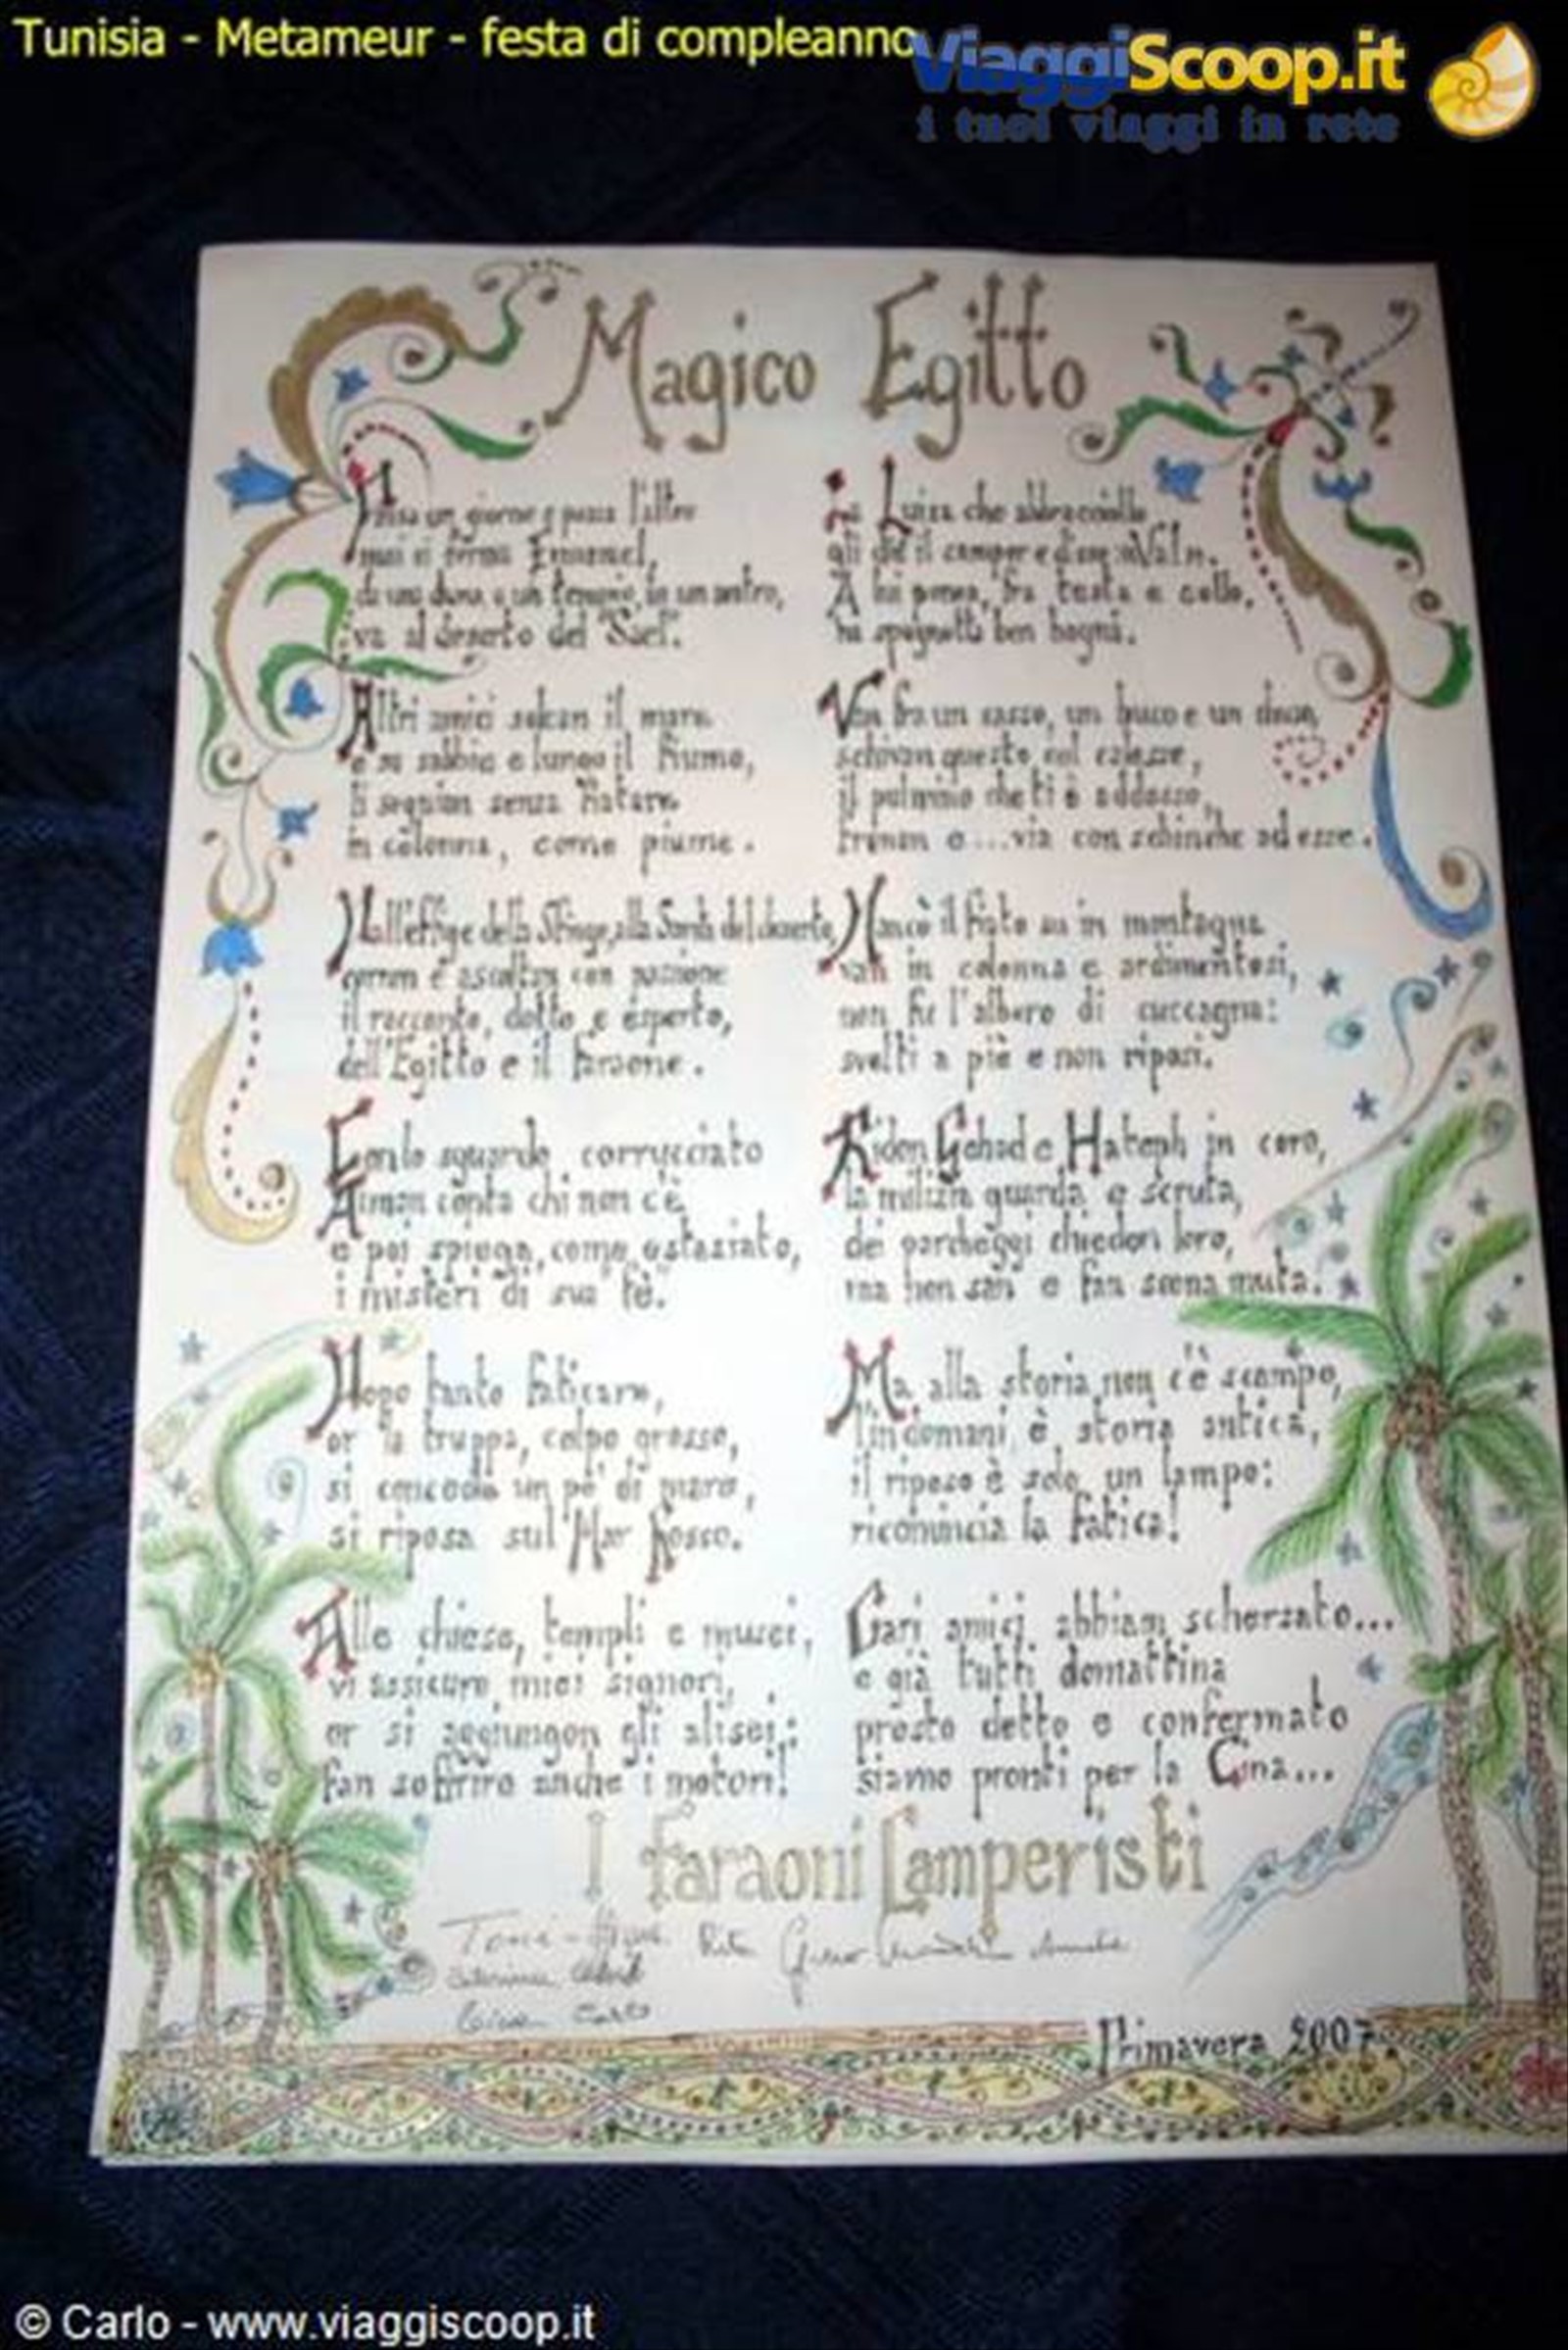 Tunisia - Metameur - festa di compleanno
ViaggiScoop.it
i tuoi viaggi in rete
Magico Egitto
Passa un giorno e passa l'altro
mai si ferma Emanuel,
da una duna a un tempio, in un antro,
va al deserto del "Suef".
Altri amici solcan il mare
e su sabbia e lungo il fiume,
li seguion senza fiatare
in colonna, come piume.
Dall'effige della Sfinge, alla Santa del deserto,
corron e ascoltan con passione
il racconto, dotto e esperto,
dell'Egitto e il faraone.
Con lo sguardo corrucciato
Aiman conta chi non c'è
e poi spiega, come estasiato,
i misteri di sua fè.
Dopo tanto faticare,
or la truppa, colpo grosso,
si concede un pò di mare,
si riposa sul Mar Rosso.
Alle chiese, templi e musei,
vi assicuro miei signori,
or si aggiungon gli alisei:
fan soffrire anche i motori!
La Luisa che abbracciollo
gli diè il camper
A lui penna, fra testa e collo,
ha spugnotti ben bagni.
Van fra un sasso, un buco e un dosso,
schivan questo col calesse,
il pulmino che ti è addosso,
frenan e...via con schinche ad esse.
Mancò il fiato su in montagna
van in colonna e ardimentosi,
non fu l'albero di cuccagna:
svelti a piè e non riposi.
Ridon Gehad e Hateph in coro,
la milizia guarda e scruta,
dei parcheggi chiedon loro,
ma non san e fan scena muta.
Ma alla storia non c'è scampo,
l'indomani è storia antica,
il riposo è solo un lampo:
ricomincia la fatica!
Cari amici abbiam scherzato...
e già tutti domattina
presto detto e confermato
siamo pronti per la Cina...
I Faraoni Camperisti
Rita
Carlo
Primavera 2007
© Carlo - www.viaggiscoop.it